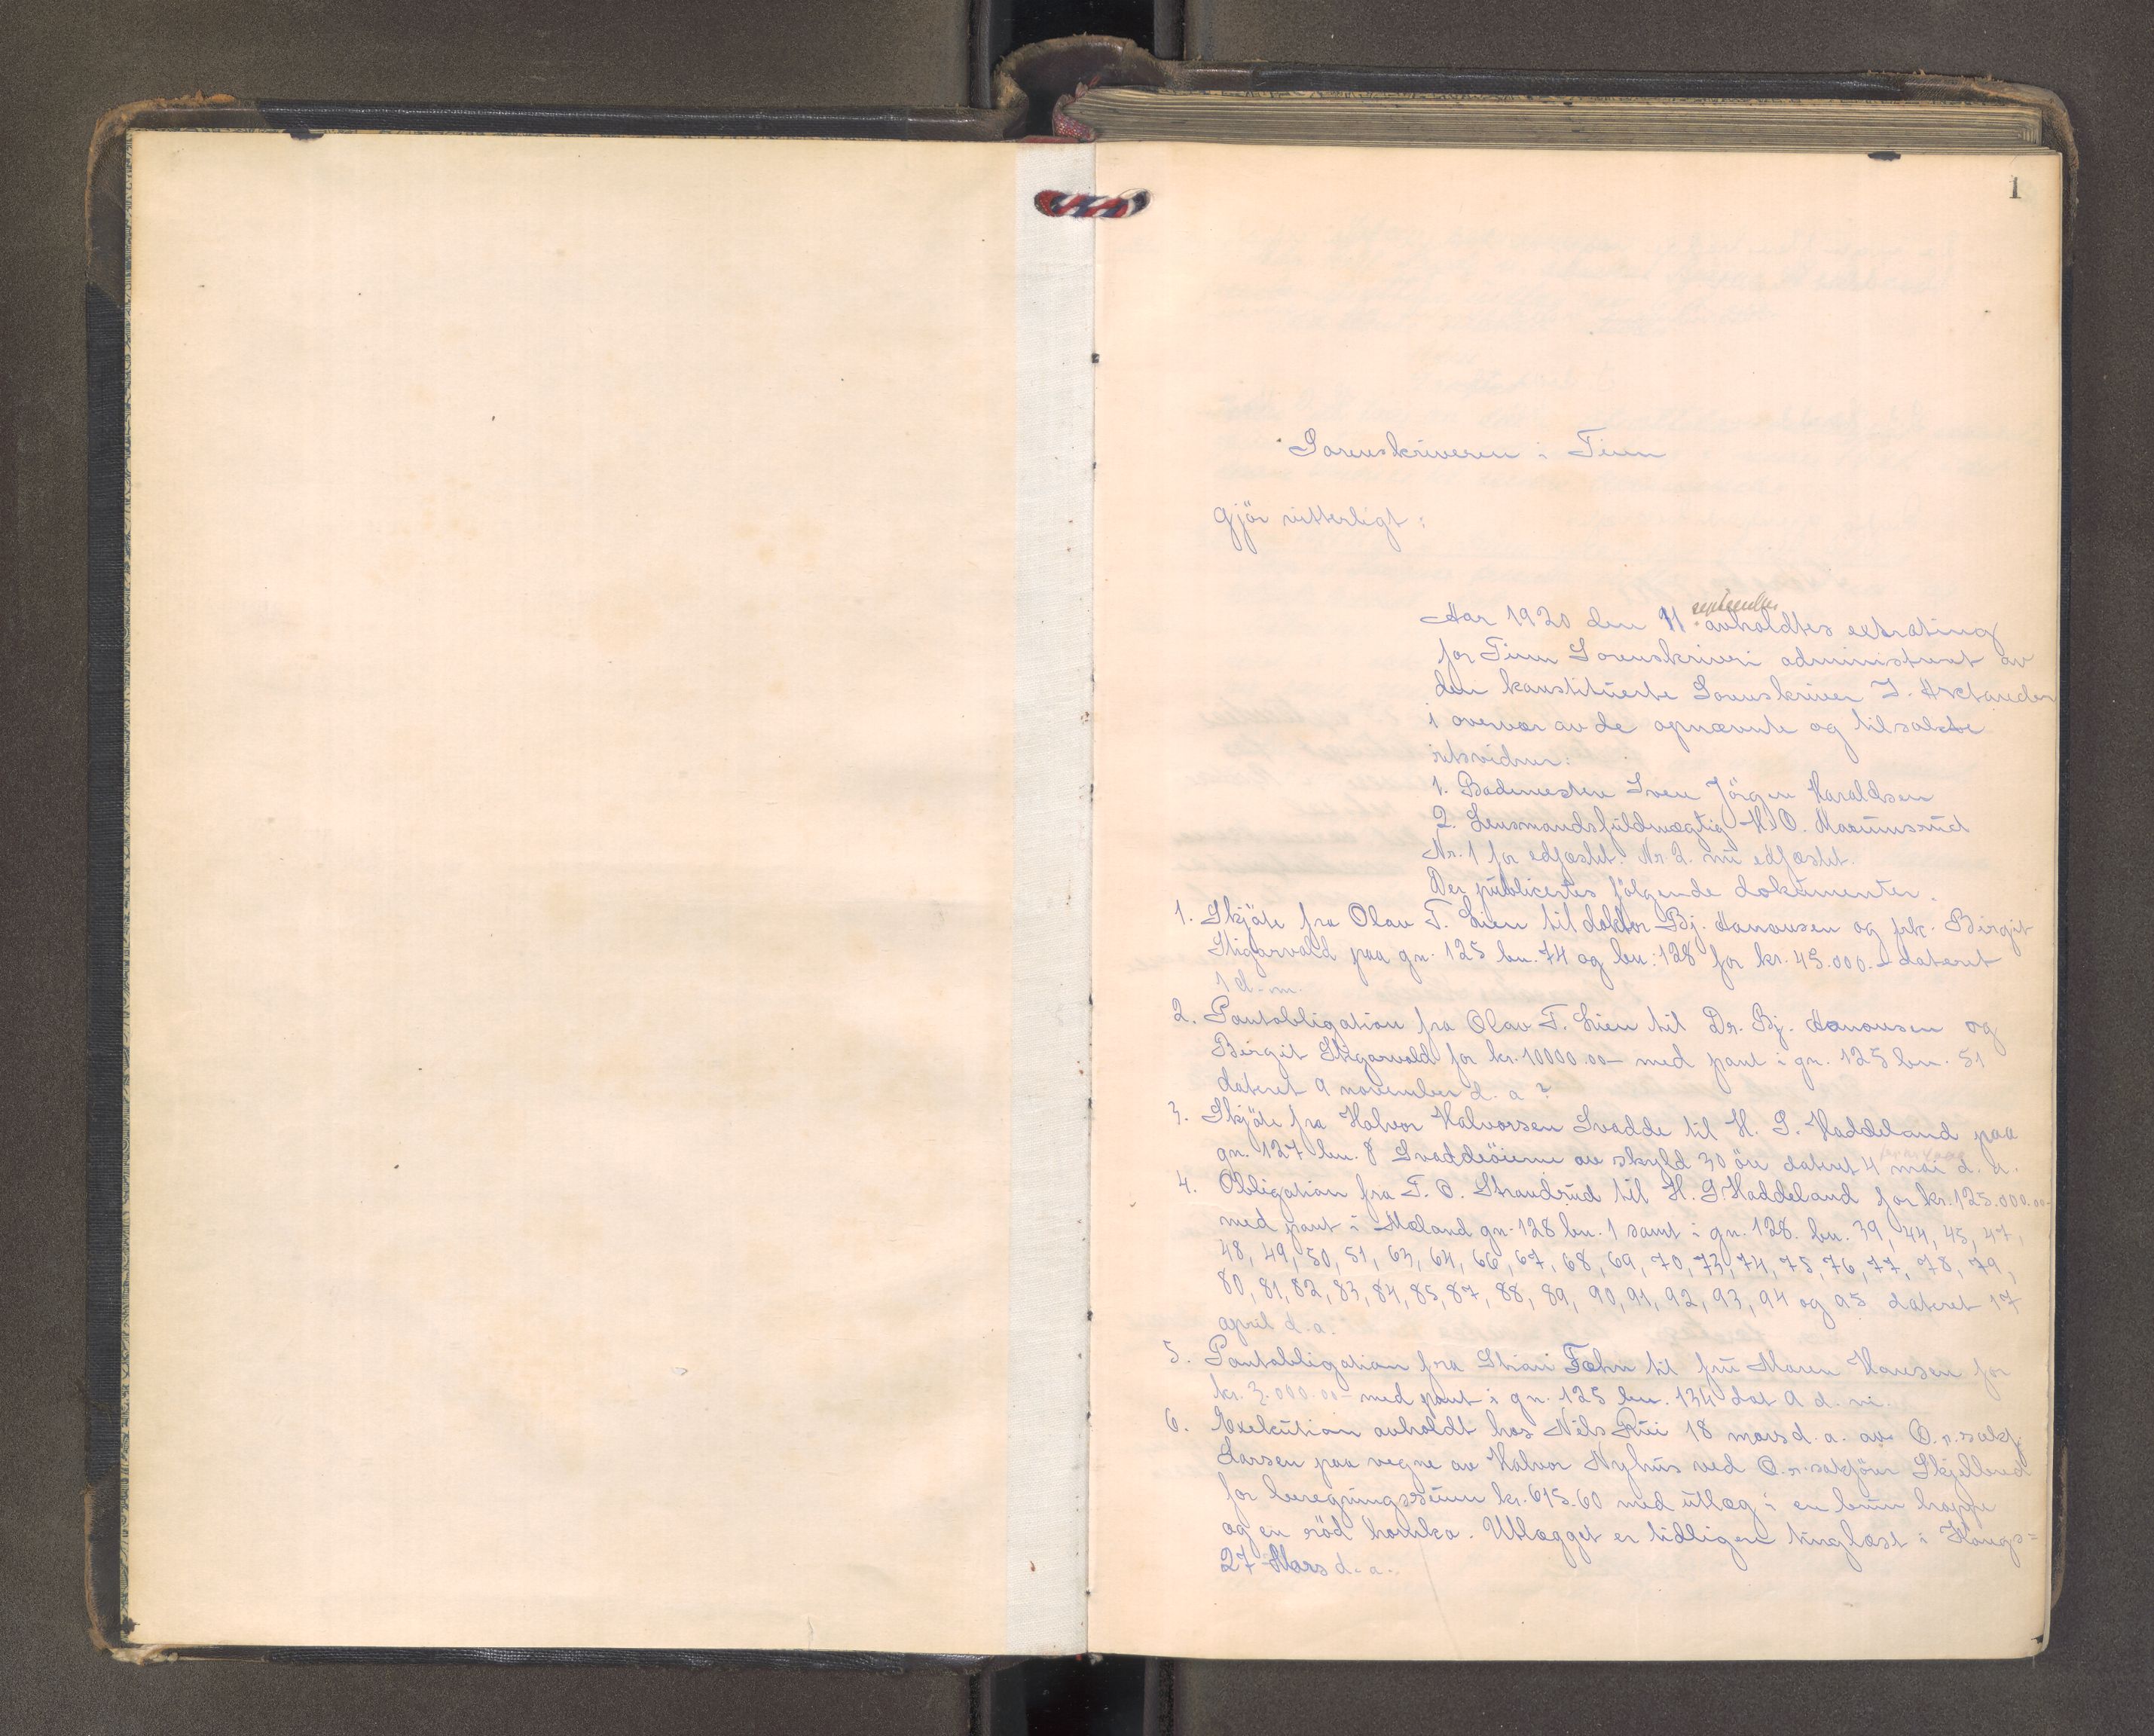 1
Sorenskriveren i Tinn
gjör vitterligt:
september
Aar 1920 den 11 avholdtes extrating
for Tinn Sorenskriveri administrert av
den konstituerte Sorenskriver J. Arctander
i overvær av de opnævnte og tilsatte
retsvidner:
1. Bademester Sven Jörgen Haraldsen
2. Lensmandsfuldmægtig H. O.
Nr. 1 for edfæstet. Nr. 2. nu edfæstet.
Der publicertes fölgende dokumenter.
1. Skjöte fra Olav T. Lien til doktor Bj. Hanousen og frk. Birgit
Stigarvold paa gn. 125 bn. 74 og bn: 128 for kr. 45.000.- dateret
1 d. m.
2. Pantobligation fra Olav T. Lien til Dr. Bj. Hanousen og
Birgit Stigarvold for kr. 10000.00- med pant i gn. 125 bn. 51
dateret 9 november d. a ?
3. Skjöte fra Halvor Halvorsen Svadde til H. G. Haddeland paa
gn. 127 bn. 8 Svaddeöierne av skyld 30 öre dateret 4 mai d. a.
4. Obligation fra T. O. Strandrud til H. G. Haddeland for kr. 125.000.00-
med pant i Mæland gn. 128 bn. 1 samt i gn. 128. bn. 39, 44, 45, 47,
48, 49, 50, 51, 63, 64, 66, 67, 68, 69, 70, 73, 74, 75, 76, 77, 78, 79,
80, 81, 82, 83, 84, 85, 87, 88, 89, 90, 91, 92, 93, 94 og 95 dateret 17
april d. a.
5. Pantobligation fra Stian Fæhn til fru Maren Hansen for
kr. 3.000.00- med pant i gn. 125 bn. 134 dat 9 d. m.
6. Exekution avholdt hos Nils Rui 18 mars d. a. av O.r.sakf
Larsen paa vegne av Halvor Nyhus ved O.r.sakförer Skjelbred
for beregningssum kr. 615.60 med utlæg i en brun hoppe
og en röd hornko. Utlægget er tidligere tinglæst i Kongs=
27 Mars d. a.